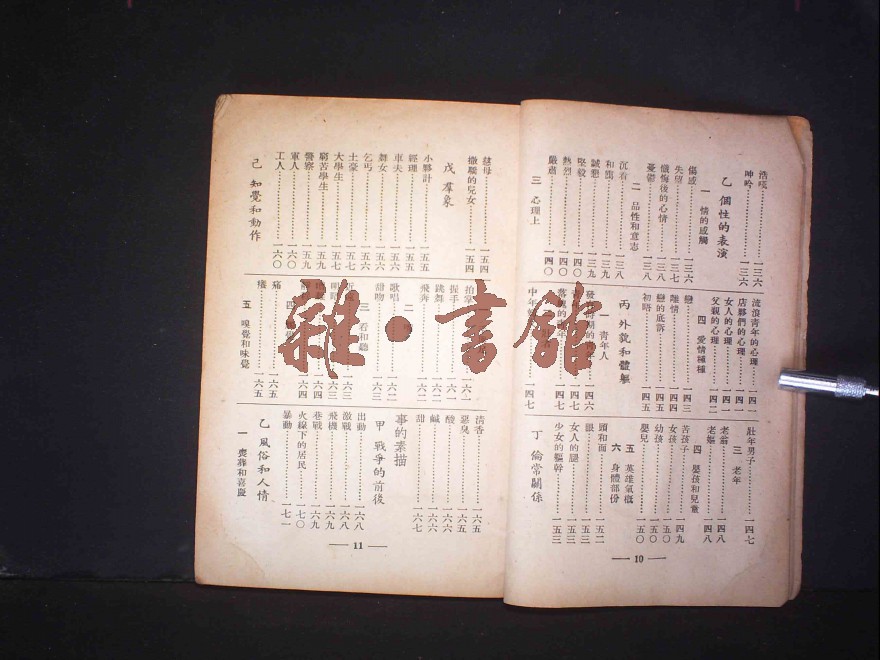 浩嘆…………一三六
呻吟…………一三六
乙 個性的表演
一 情的感觸
傷感…………一三六
失望…………一三七
懺悔後的心情…………一三八
憂鬱
二 品性和意志
沉着…………一三八
和藹…………一三九
誠懇…………一三九
堅毅…………一四〇
熱烈…………一四〇
嚴肅…………一四〇
三 心理上
流浪青年的心理…………一四一
店夥們的心理…………一四一
女人的心理…………一四一
父親的心理…………一四二
四 愛情種種
戀…………一四三
離情…………一四四
戀的底訴…………一四四
初吻…………一四五
丙 外貌和體軀
一 青年人
中年
一四七
壯年男子…………一四七
三 老年
老翁…………一四八
老嫗…………一四八
四 嬰孩和兒童
苦孩子…………一四九
女孩…………一五〇
幼孩…………一五〇
嬰兒…………一五〇
五 英雄氣概
六 身體部份
頭和面…………一五二
眼…………一五三
女人的腿…………一五三
少女的軀幹…………一五三
丁 倫常關係
— 10 —
慈母…………一五四
撒嬌的兒女…………一五四
戊 羣象
小夥計…………一五五
經理…………一五五
車夫…………一五六
舞女…………一五六
乞丐…………一五六
土豪…………一五七
大學生…………一五七
窮苦學生…………一五九
警察…………一五九
軍人…………一六〇
工人…………一六〇
己 知覺和動作
握手
跳舞
飛奔…………一六二
歌唱…………一六二
甜吻…………一六三
三 看和聽
痛…………一六五
癢…………一六五
五 嗅覺和味覺
清香…………一六五
惡臭…………一六五
酸…………一六六
鹹…………一六六
甜…………一六七
事的素描
甲 戰爭的前後
出動…………一六八
激戰…………一六八
飛機…………一六九
巷戰…………一六九
火線下的居民…………一七〇
暴動…………一七一
乙 風俗和人情
一 喪葬和喜慶
— 11 —
雜·書館